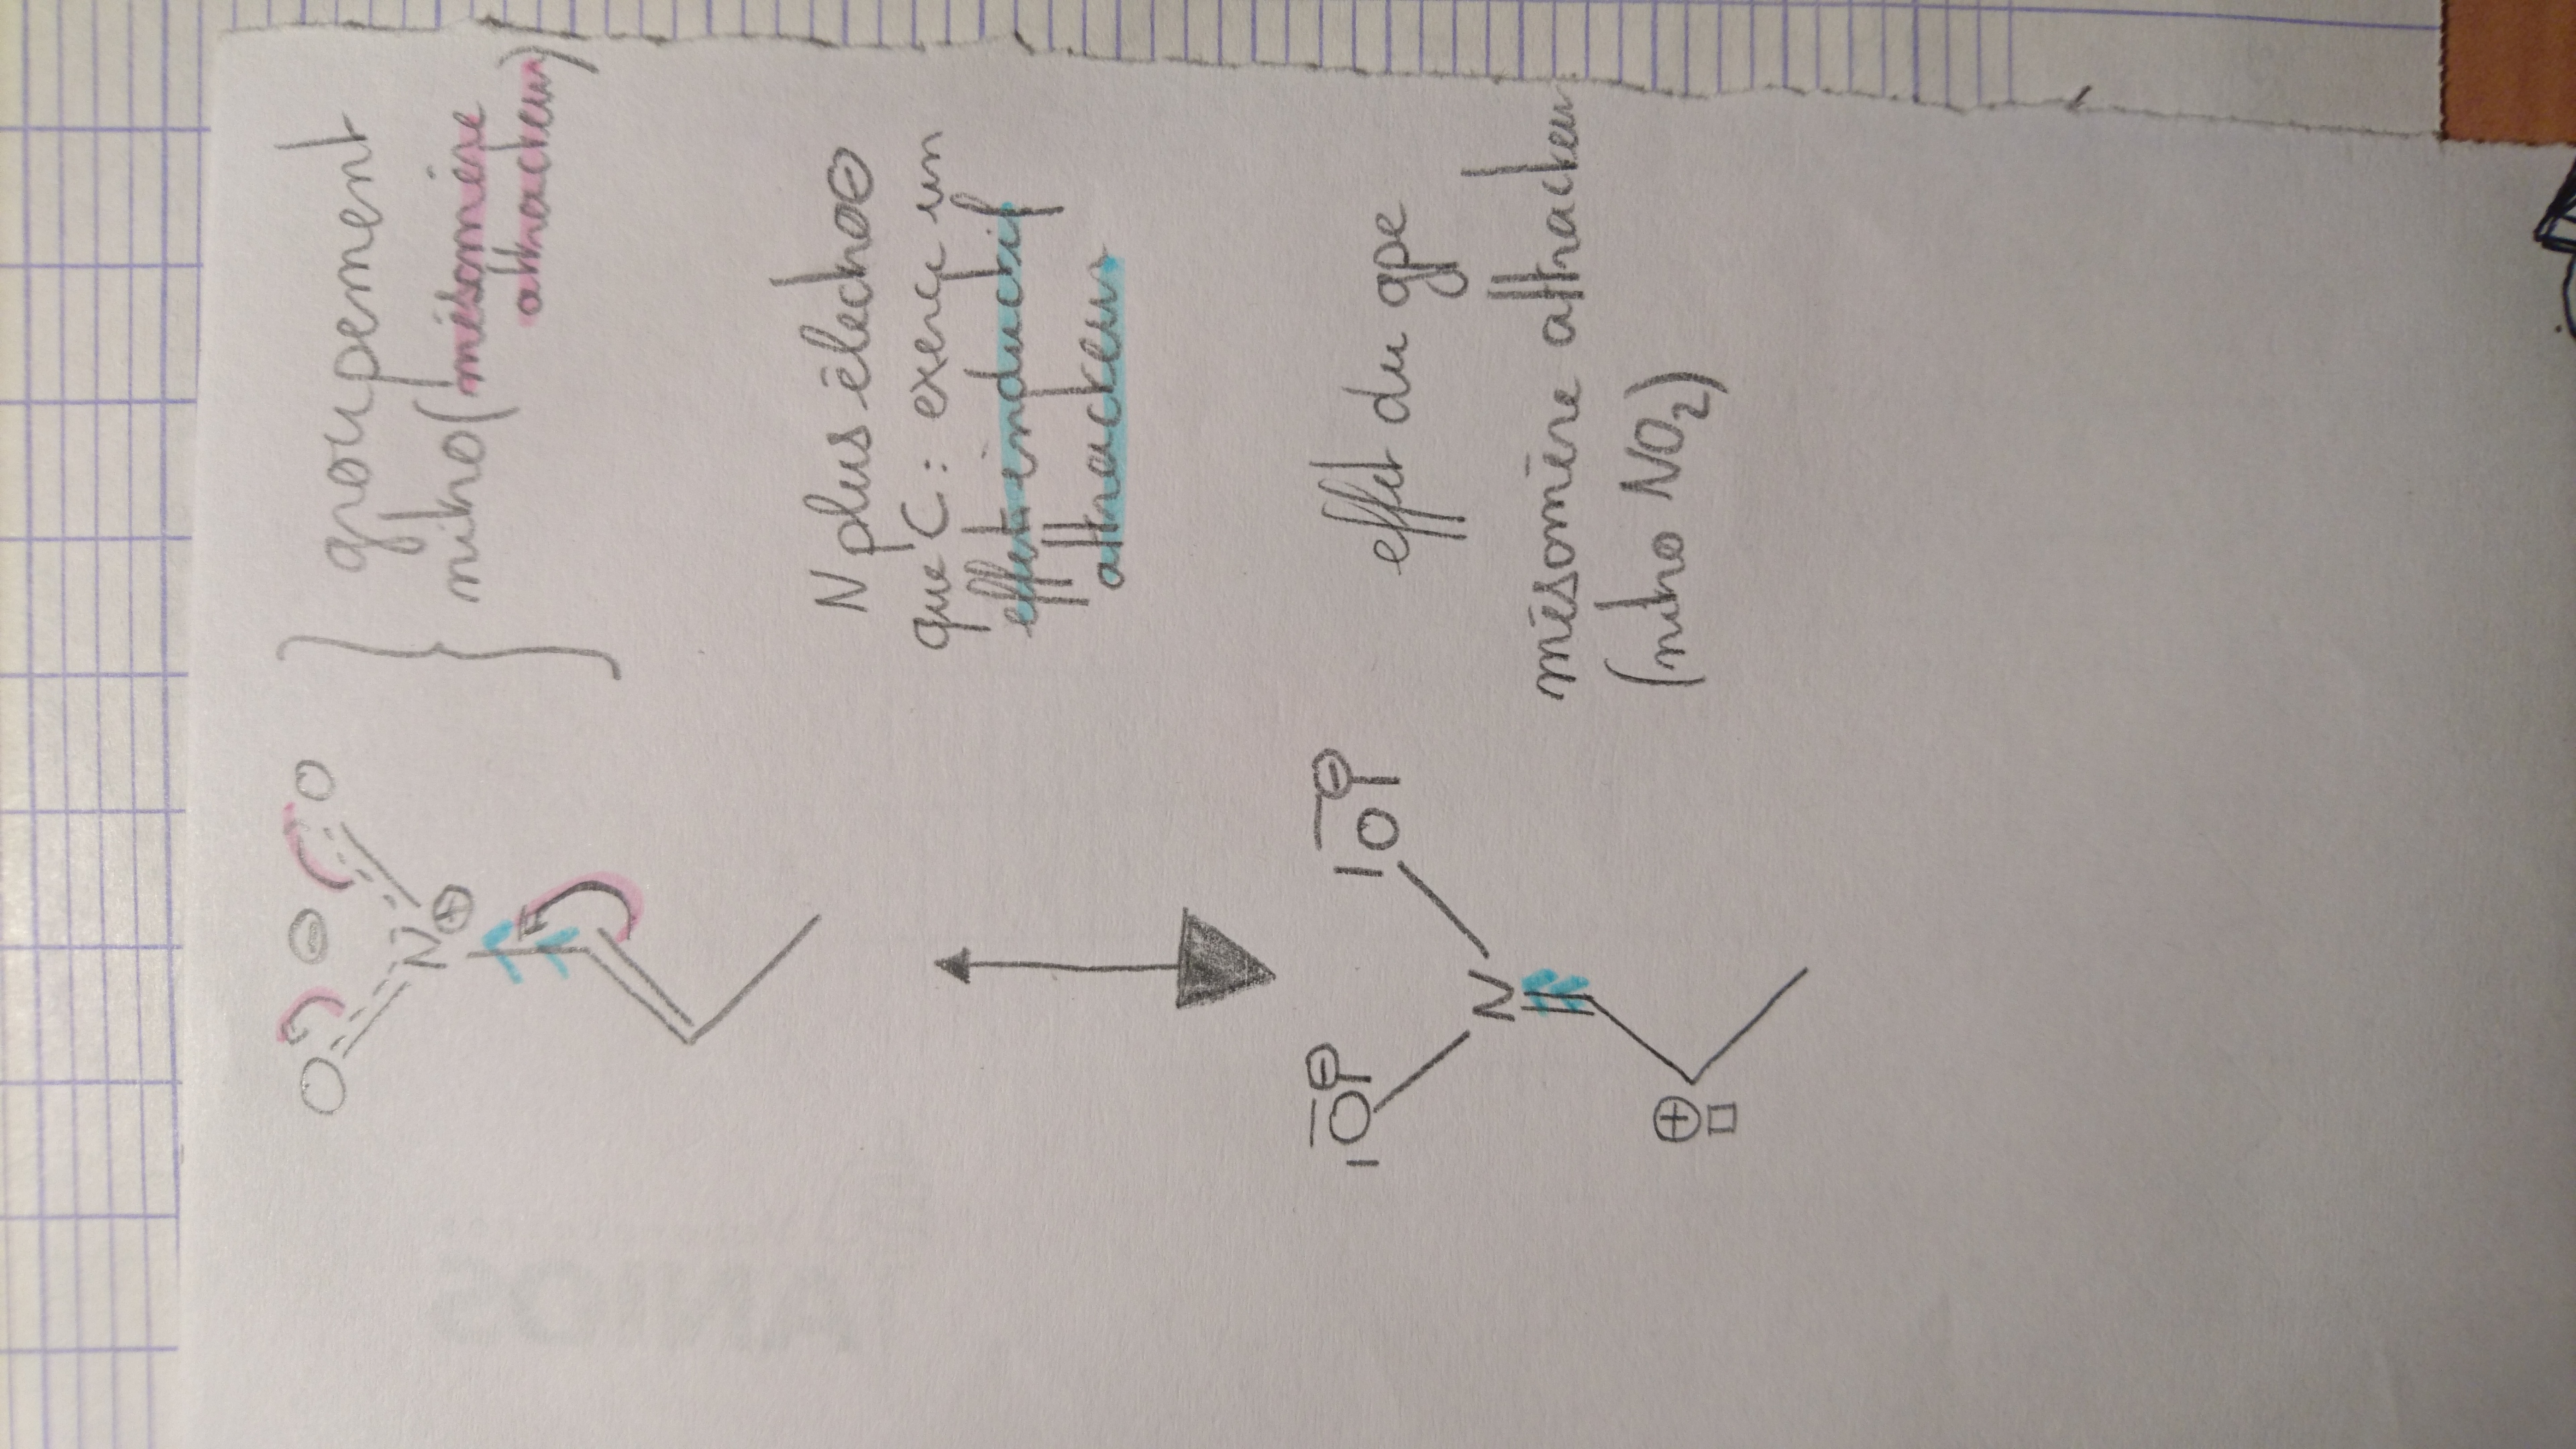 groupement
nitro (mésomère
attracteur)
O ⊖ O
N ⊕
N plus électro⊖
que C : exerce un
effet inductif
attracteur
effet du gpe
mésomère attracteur
(nitro NO₂)
|O̅|⊖ |O̅|⊖
N
⊕